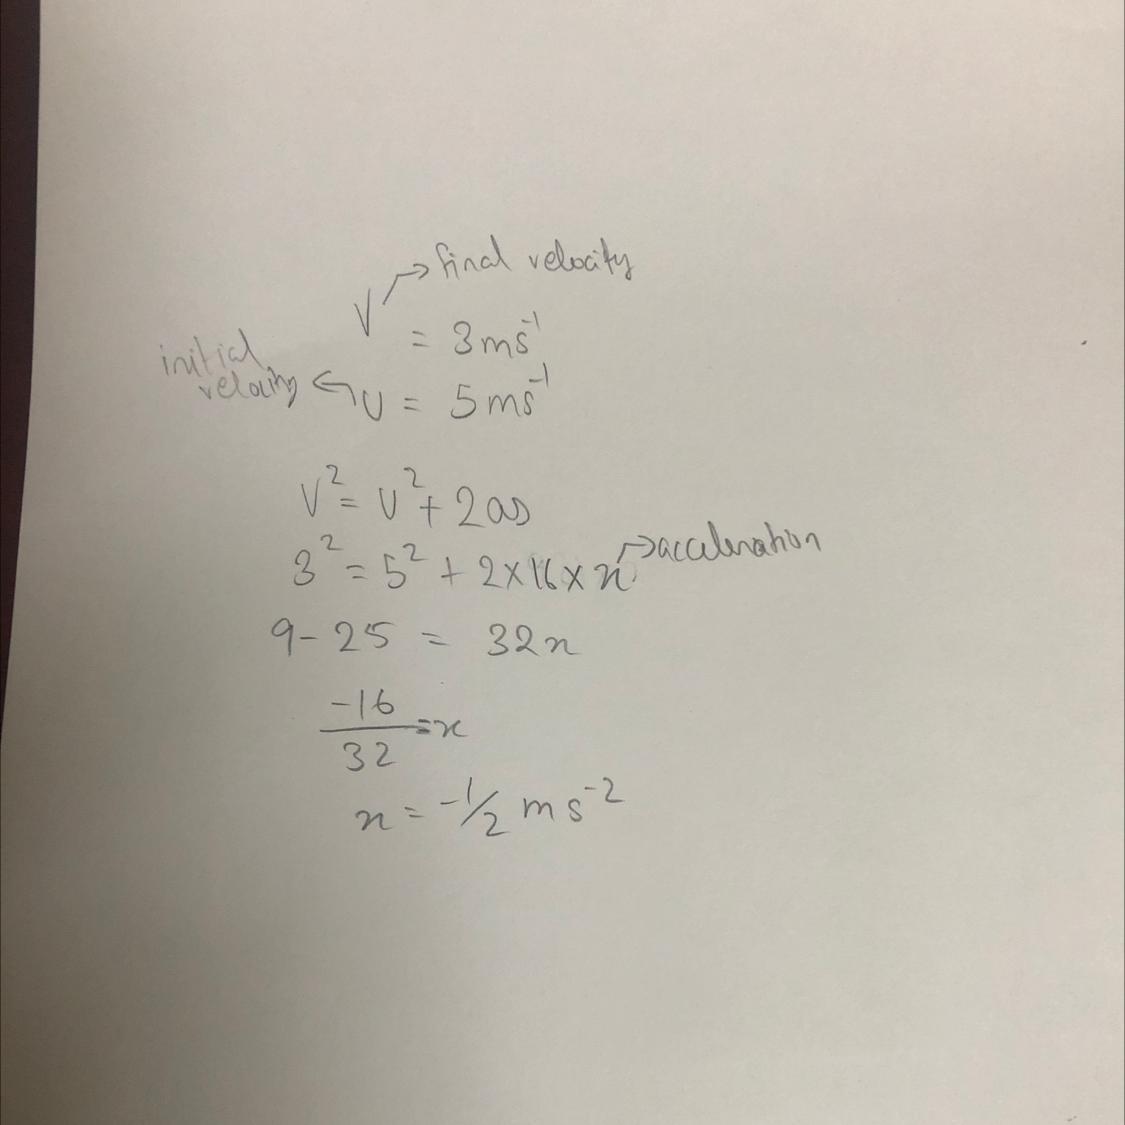 → final velocity
V = 3ms⁻¹
initial
velocity ← U = 5ms⁻¹
V² = U² + 2as
3² = 5² + 2×16×x → acceleration
9 - 25 = 32x
-16/32 = x
x = -1/2 ms⁻²